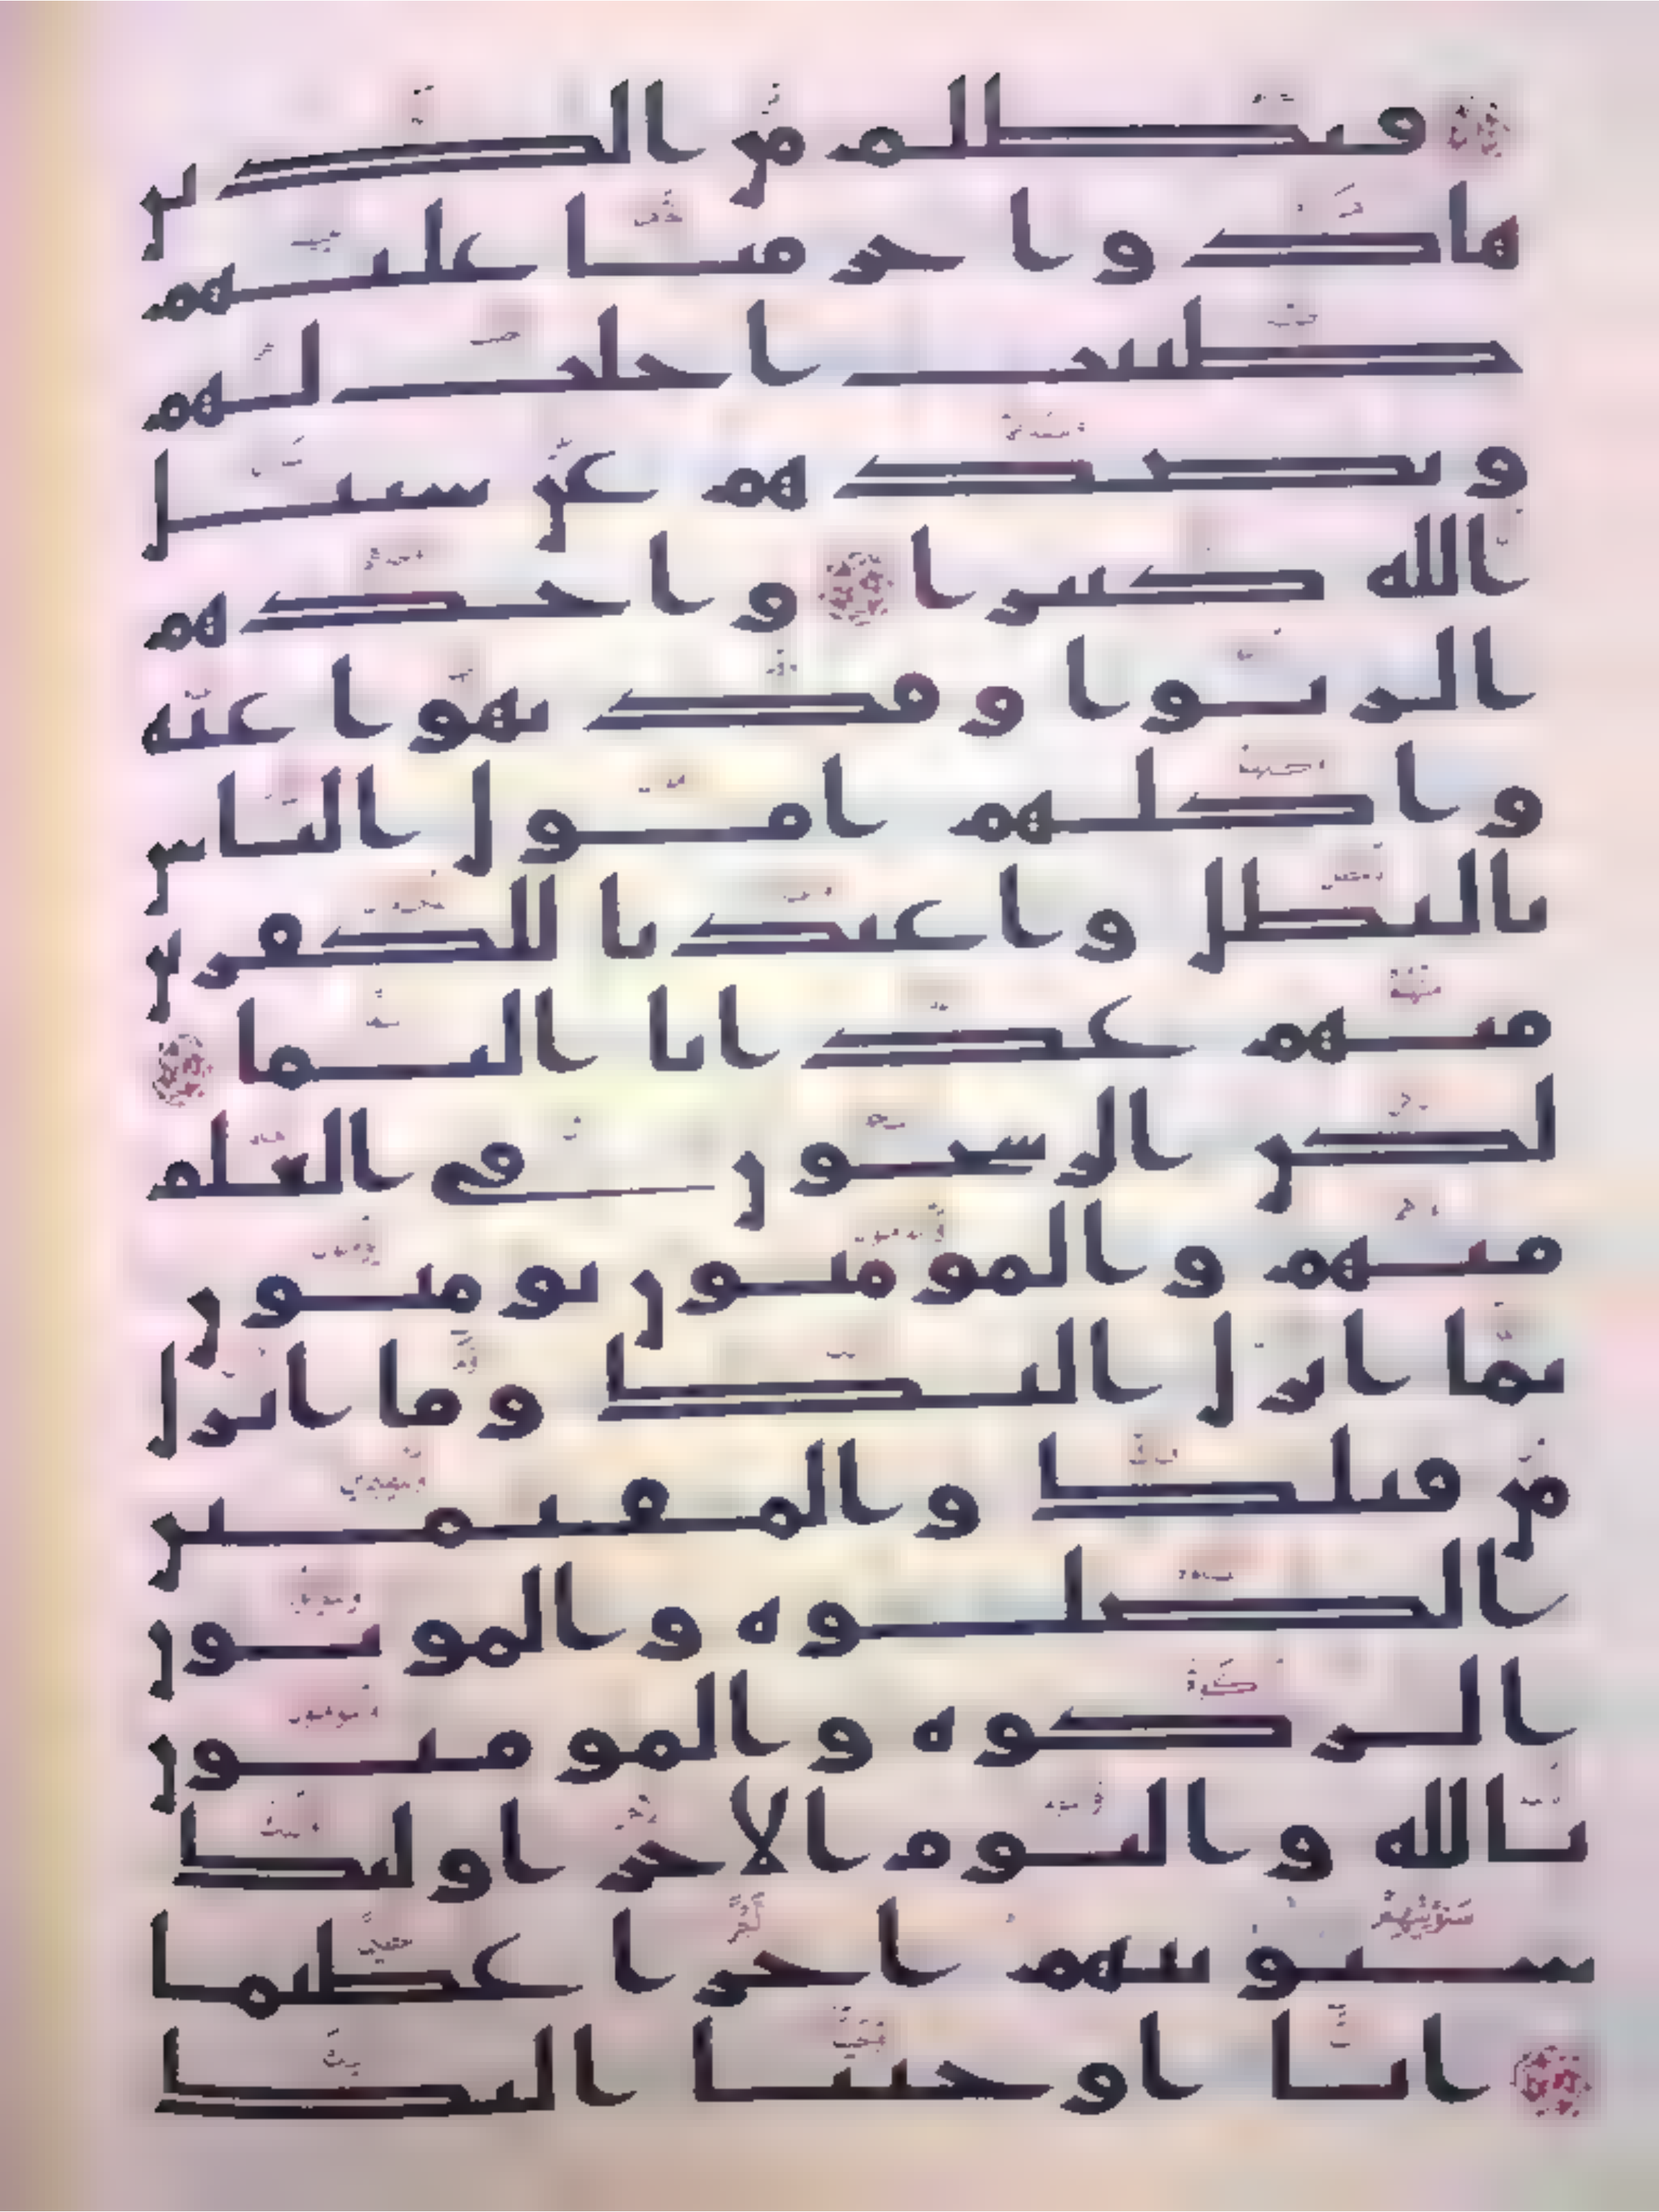 فبظلم من الذين
هادوا حرمنا عليهم
طيبت احلت لهم
وبصدهم عن سبيل
الله كثيرا واخذهم
الربوا وقد نهوا عنه
واكلهم امول الناس
بالبطل واعتدنا للكفرين
منهم عذابا اليما
لكن الرسخون في العلم
منهم والمومنون يومنون
بما انزل اليك وما انزل
من قبلك والمقيمين
الصلوه والموتون
الزكوه والمومنون
بالله واليوم الاخر اوليك
سنوتيهم اجرا عظيما
انا اوحينا اليك